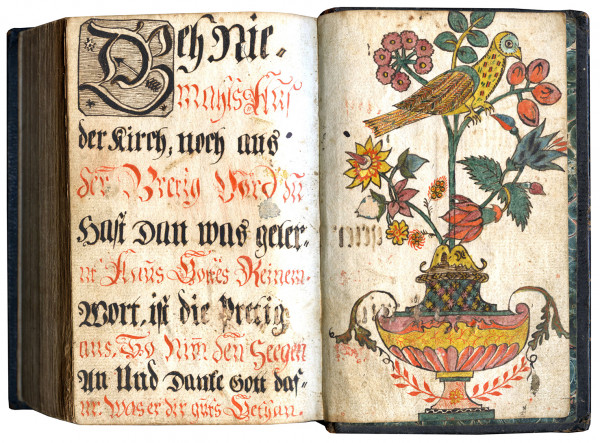 Geh Nie=
mahls Aus
der Kirch, noch aus
der Predig du
Hast Dan was geler=
nt Auus Gottes Reinem
Wort, ist die Predig
aus, So Nim den Seegen
An Und Danke Gott daf=
ur. Was er dir guts Gethan.